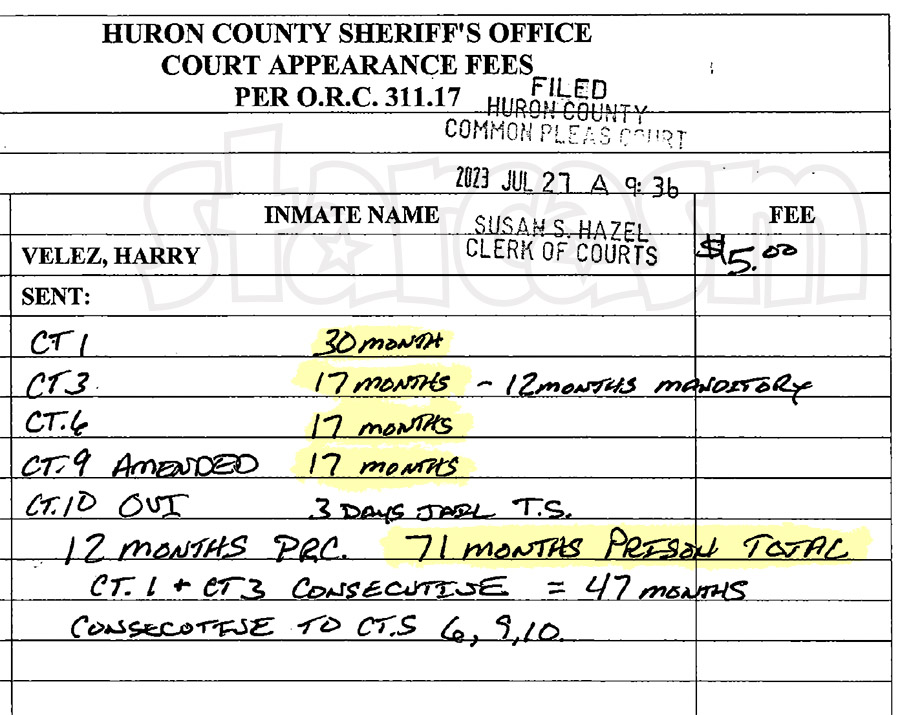 HURON COUNTY SHERIFF'S OFFICE
COURT APPEARANCE FEES
PER O.R.C. 311.17
FILED
HURON COUNTY
COMMON PLEAS COURT
2023 JUL 27 A 9:36
SUSAN S. HAZEL
CLERK OF COURTS
starcasm
INMATE NAME FEE
VELEZ, HARRY $5.00
SENT:
CT 1 30 MONTH
CT3 17 MONTHS - 12 MONTHS MANDITORY
CT.6 17 MONTHS
CT.9 AMENDED 17 MONTHS
CT.10 OVI 3 DAYS JAIL T.S.
12 MONTHS PRC. 71 MONTHS PRISON TOTAL
CT. 1 + CT3 CONSECUTIVE = 47 MONTHS
CONSECOTIVE TO CT.S 6, 9, 10.